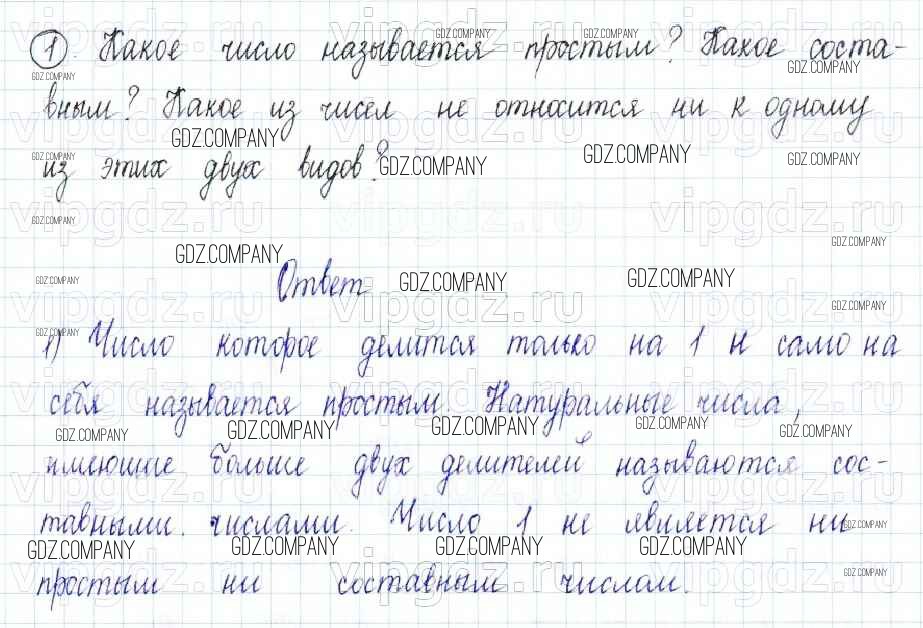 1. Какое число называется простым? Какое соста-
вным? Какое из чисел не относится ни к одному
из этих двух видов?
Ответ
1) Число которое делится только на 1 и само на
себя называется простым. Натуральные числа,
имеющие больше двух делителей называются сос-
тавными. числами. Число 1 не является ни
простым ни составным числом.
vipgdz.ru
GDZ.COMPANY